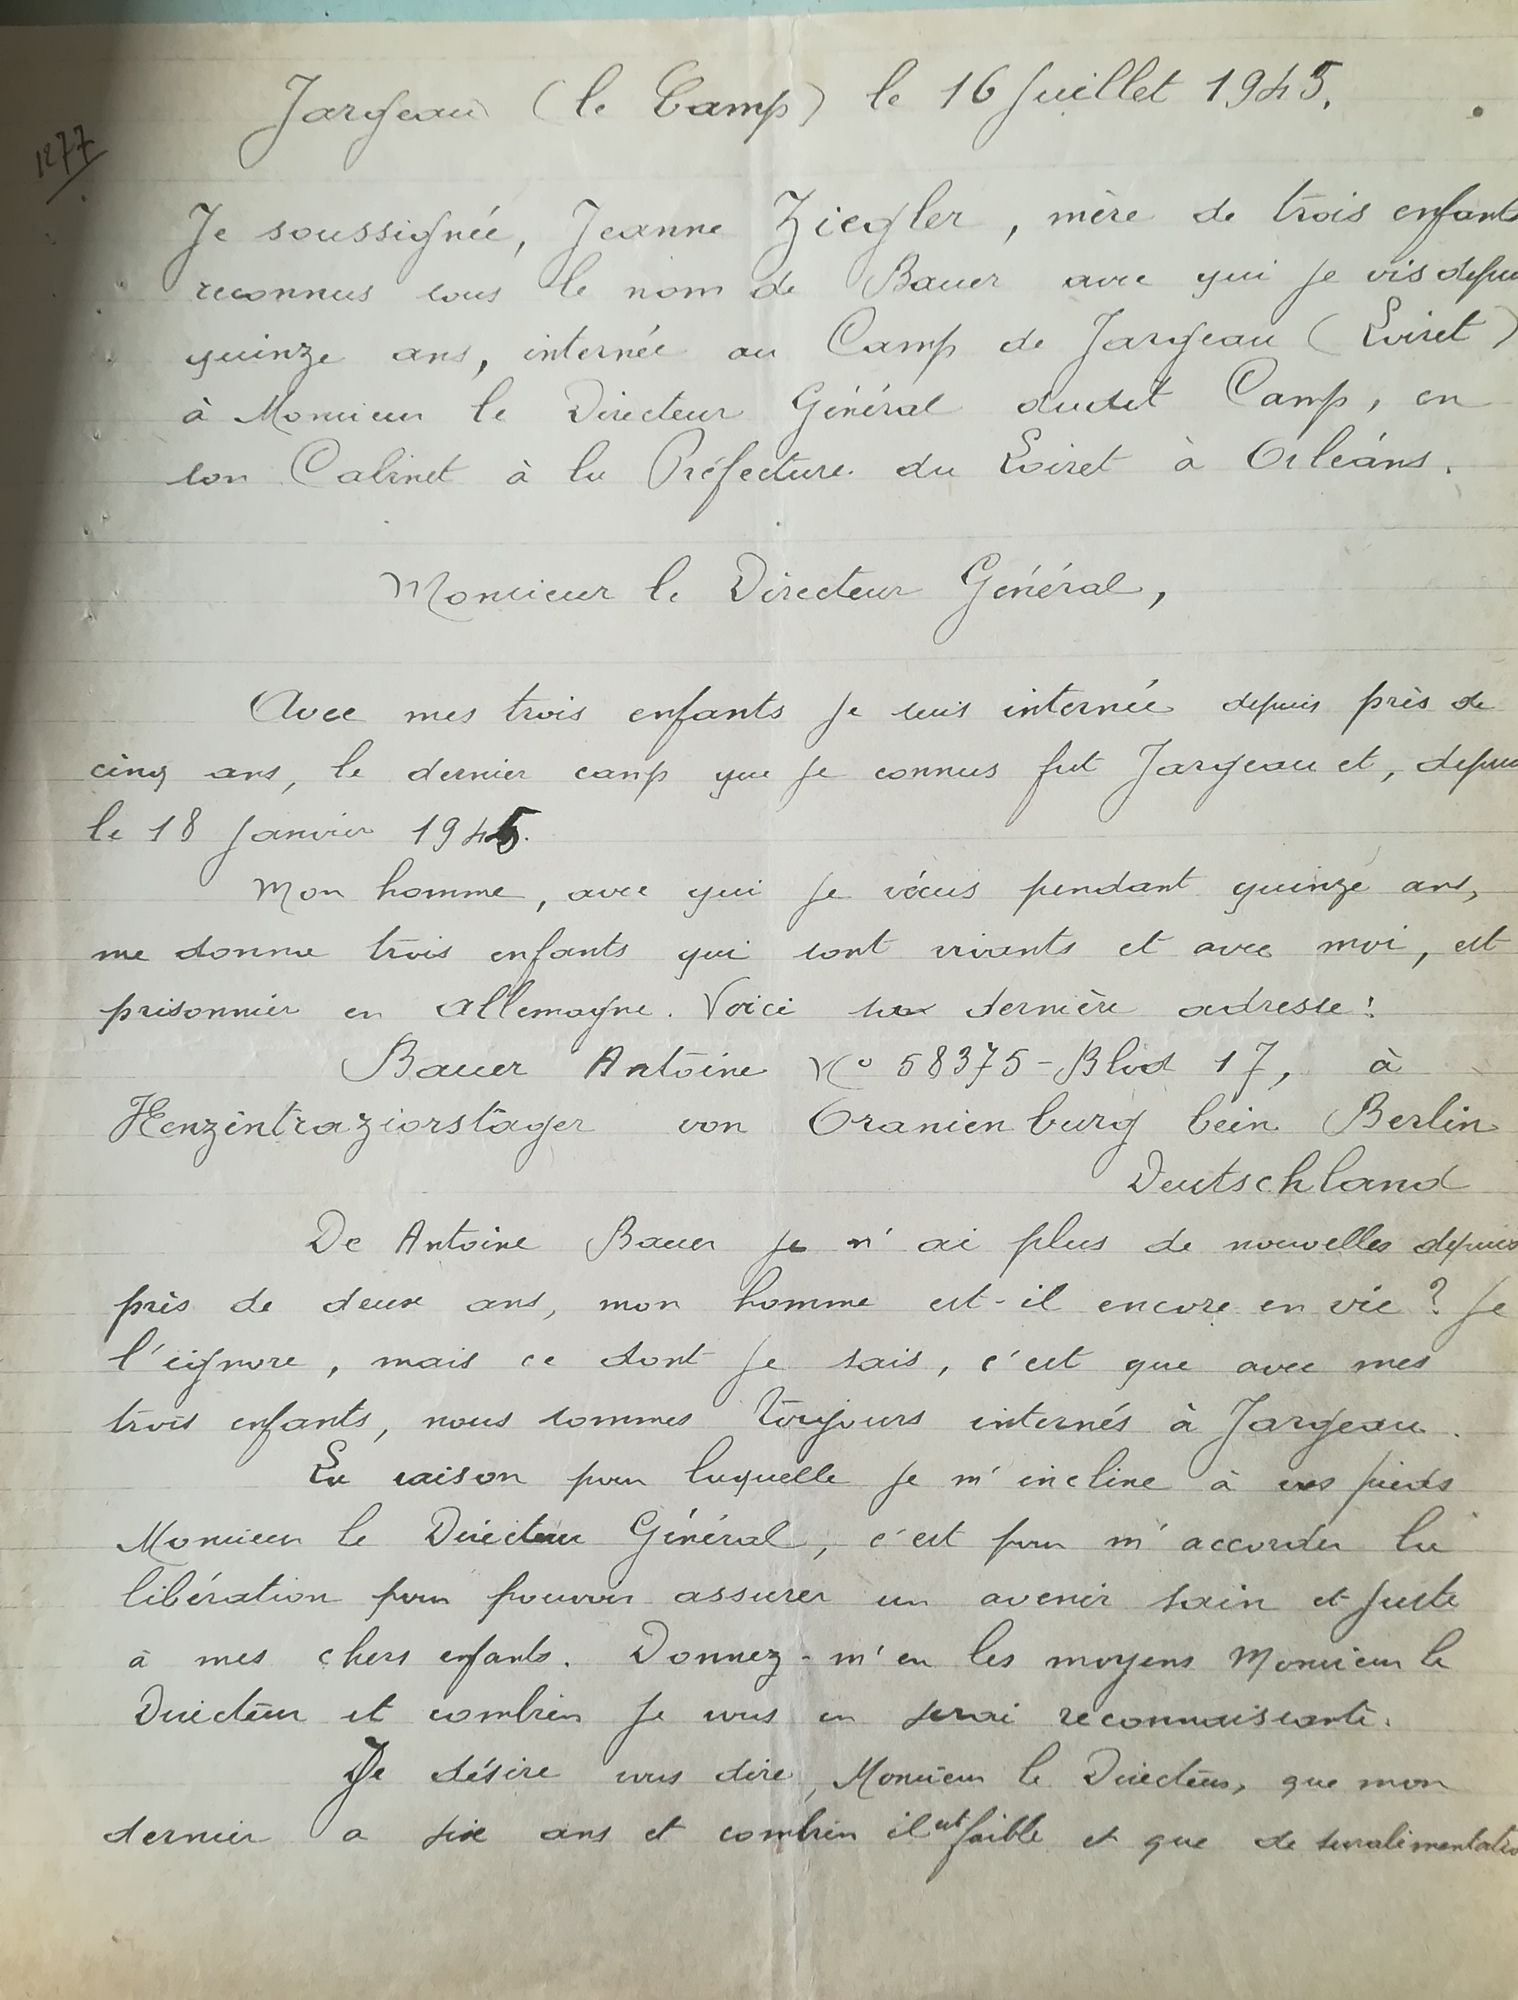 Jargeau (le Camp) le 16 Juillet 1945.
1277
Je soussignée, Jeanne Ziegler, mère de trois enfants
reconnus sous le nom de Bauer avec qui je vis depui
quinze ans, internée au Camp de Jargeau (Loiret)
à Monsieur le Directeur Général dudit Camp, en
son Cabinet à la Préfecture du Loiret à Orléans.
Monsieur le Directeur Général,
Avec mes trois enfants je suis internée depuis près de
cinq ans, le dernier camp que je connus fut Jargeau et, depuis
le 18 Janvier 1945.
Mon homme, avec qui je vécus pendant quinze ans,
me donna trois enfants qui sont vivants et avec moi, est
prisonnier en Allemagne. Voici sa dernière adresse :
Bauer Antoine No 58375 - Blod 17, à
Henzintraziorstager von Oranienburg bein Berlin
Deutschland
De Antoine Bauer je n'ai plus de nouvelles depuis
près de deux ans, mon homme est-il encore en vie ? Je
l'ignore, mais ce dont je sais, c'est que avec mes
trois enfants, nous sommes toujours internés à Jargeau.
La raison pour laquelle je m'incline à vos pieds
Monsieur le Directeur Général, c'est pour m'accorder la
libération pour pouvoir assurer un avenir sain et juste
à mes chers enfants. Donnez-m'en les moyens Monsieur le
Directeur et combien je vous en serai reconnaissante.
Je désire vous dire, Monsieur le Directeur, que mon
dernier a six ans et combien il est faible et que de suralimentatio